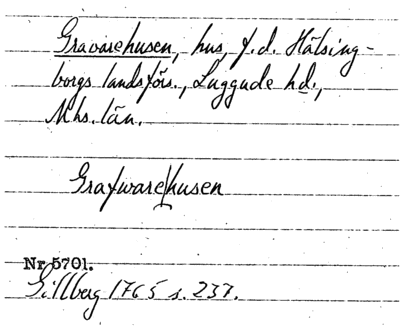 Gravarehusen, hus, f.d. Hälsing-
borgs landsförs., Luggude hd.,
Mhs. län.
Grafwarehusen
Nr 5701.
Gillberg 1765 s. 237.